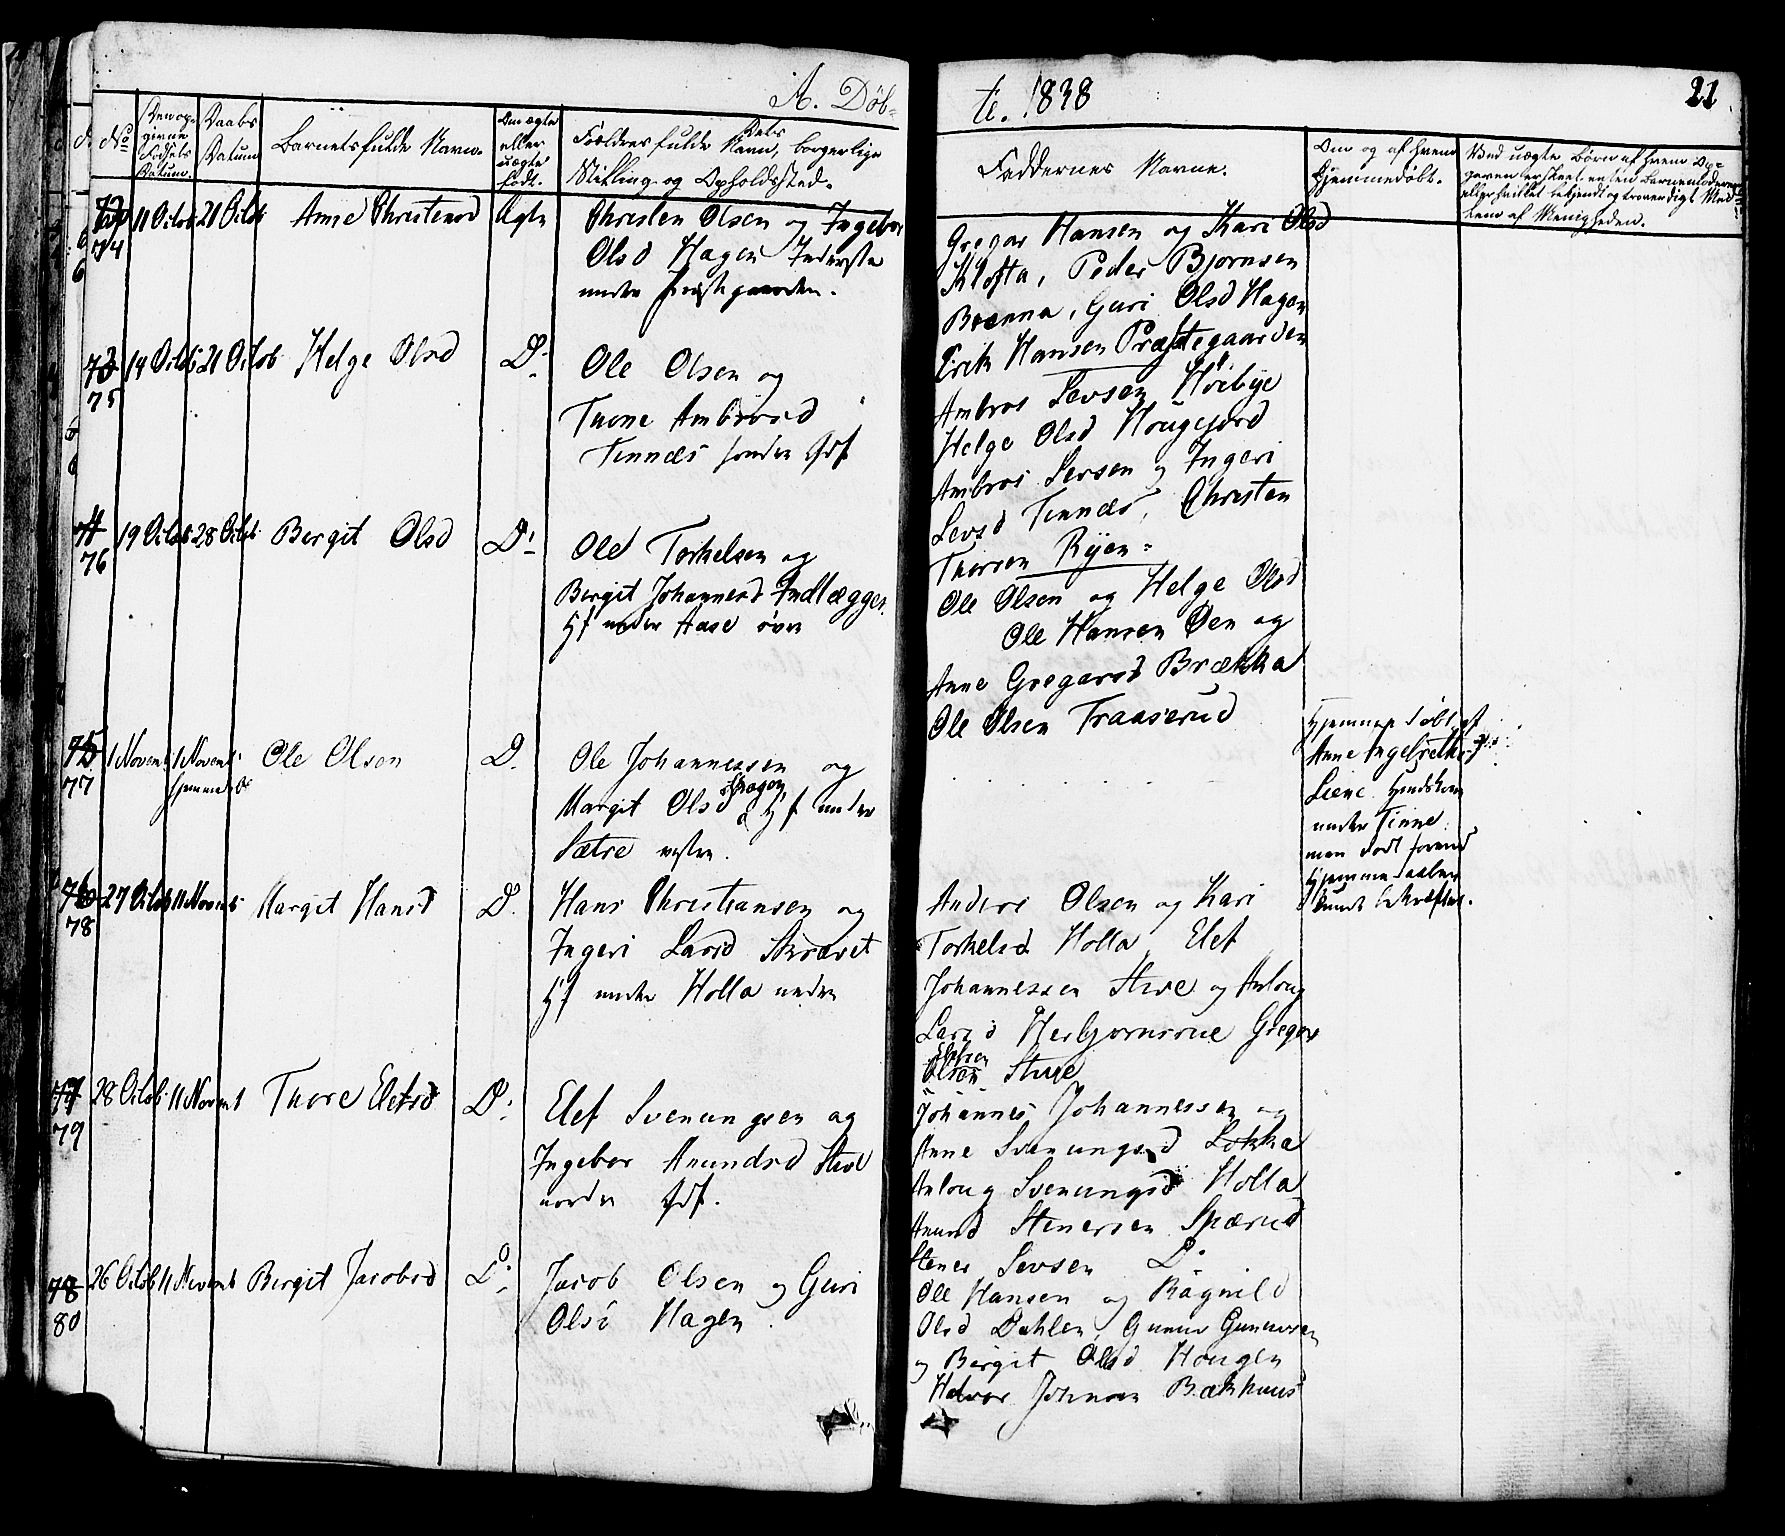 A. Døb-
te. 1838
21
No
Den opgivne Fødsels Datum.
Daabs Datum
Barnets fulde Navn.
Om ægte eller uægte født.
Forældres fulde Navn, Dets borgerlige
Stilling og Opholdssted.
Faddernes Navne.
Om og af hvem
Hjemmedøbt.
72
74
11 Octob
21 Octob
Anne Christensd
Ægte
Christen Olsen og Ingebor
Olsd Hagen Inderste
under Præstegaarden.
Gregar Hansen og Kari Olsd
Klofta, Peder Bjørnsen
Brænna, Guri Olsd Hagen
Erik Hansen Præstegaarden
73
75
14 Octob
21 Octob
Helge Olsd
Do
Ole Olsen og
Thone Ambrosd
Tinnes søndre Gdf
Ambros Sevsen Høibye
Helge Olsd Hougefjord
Ambros Sevsen og Ingeri
Sevsd Tinnes, Christen
Thorsen Ryen
74
76
19 Octob
28 Octob
Bergit Olsd
Do
Ole Torkelsen og
Bergit Johannesd Indlægger
Hf under Aase øvre
Ole Olsen og Helge Olsd
Ole Hansen Øen og
Anne Gregarsd Brækka
Ole Olsen Traaserud
75
77
1 Novemb
1 Novemb
hjemmed
Ole Olsen
D.
Ole Johannessen og
Margit Olsd Skogen Hf under
Sætre vestre.
Hjemmedøbt af
Anne Ingebreths
Liene Huuskone
under Tinne
men død forend
Hjemmedaaben
kunde bekræftes.
76
78
27 Octob
11 Novemb
Margit Hansd
D.
Hans Christiansen og
Ingeri Larsd Skrævet
Hf under Holla nedre
Anders Olsen og Kari
Torkelsd Holla, Elef
Johannessen Stive og Anloug
Larsd Herbjørnsrue Gregar
Elefsen
Olsen Stive
77
79
28 Octob
11 Novemb
Thore Elefsd
D.
Elef Svenungsen og
Ingebor Amundsd Stive
nordre Gdf.
Johannes Johannessen og
Anne Svenungsd Lokka
Anloug Svenungsd Holla
Amund Stenersen Spærud
Stener Sevsen Do
78
80
26 Octob
11 Novemb
Bergit Jacobsd
Do
Jacob Olsen og Guri
Olsd Hagen.
Ole Hansen og Ragnild
Olsd Dahlen, Gunnar Gunnarsen
og Bergit Olsd Hougen
Halvor Johnsen Bækhuus